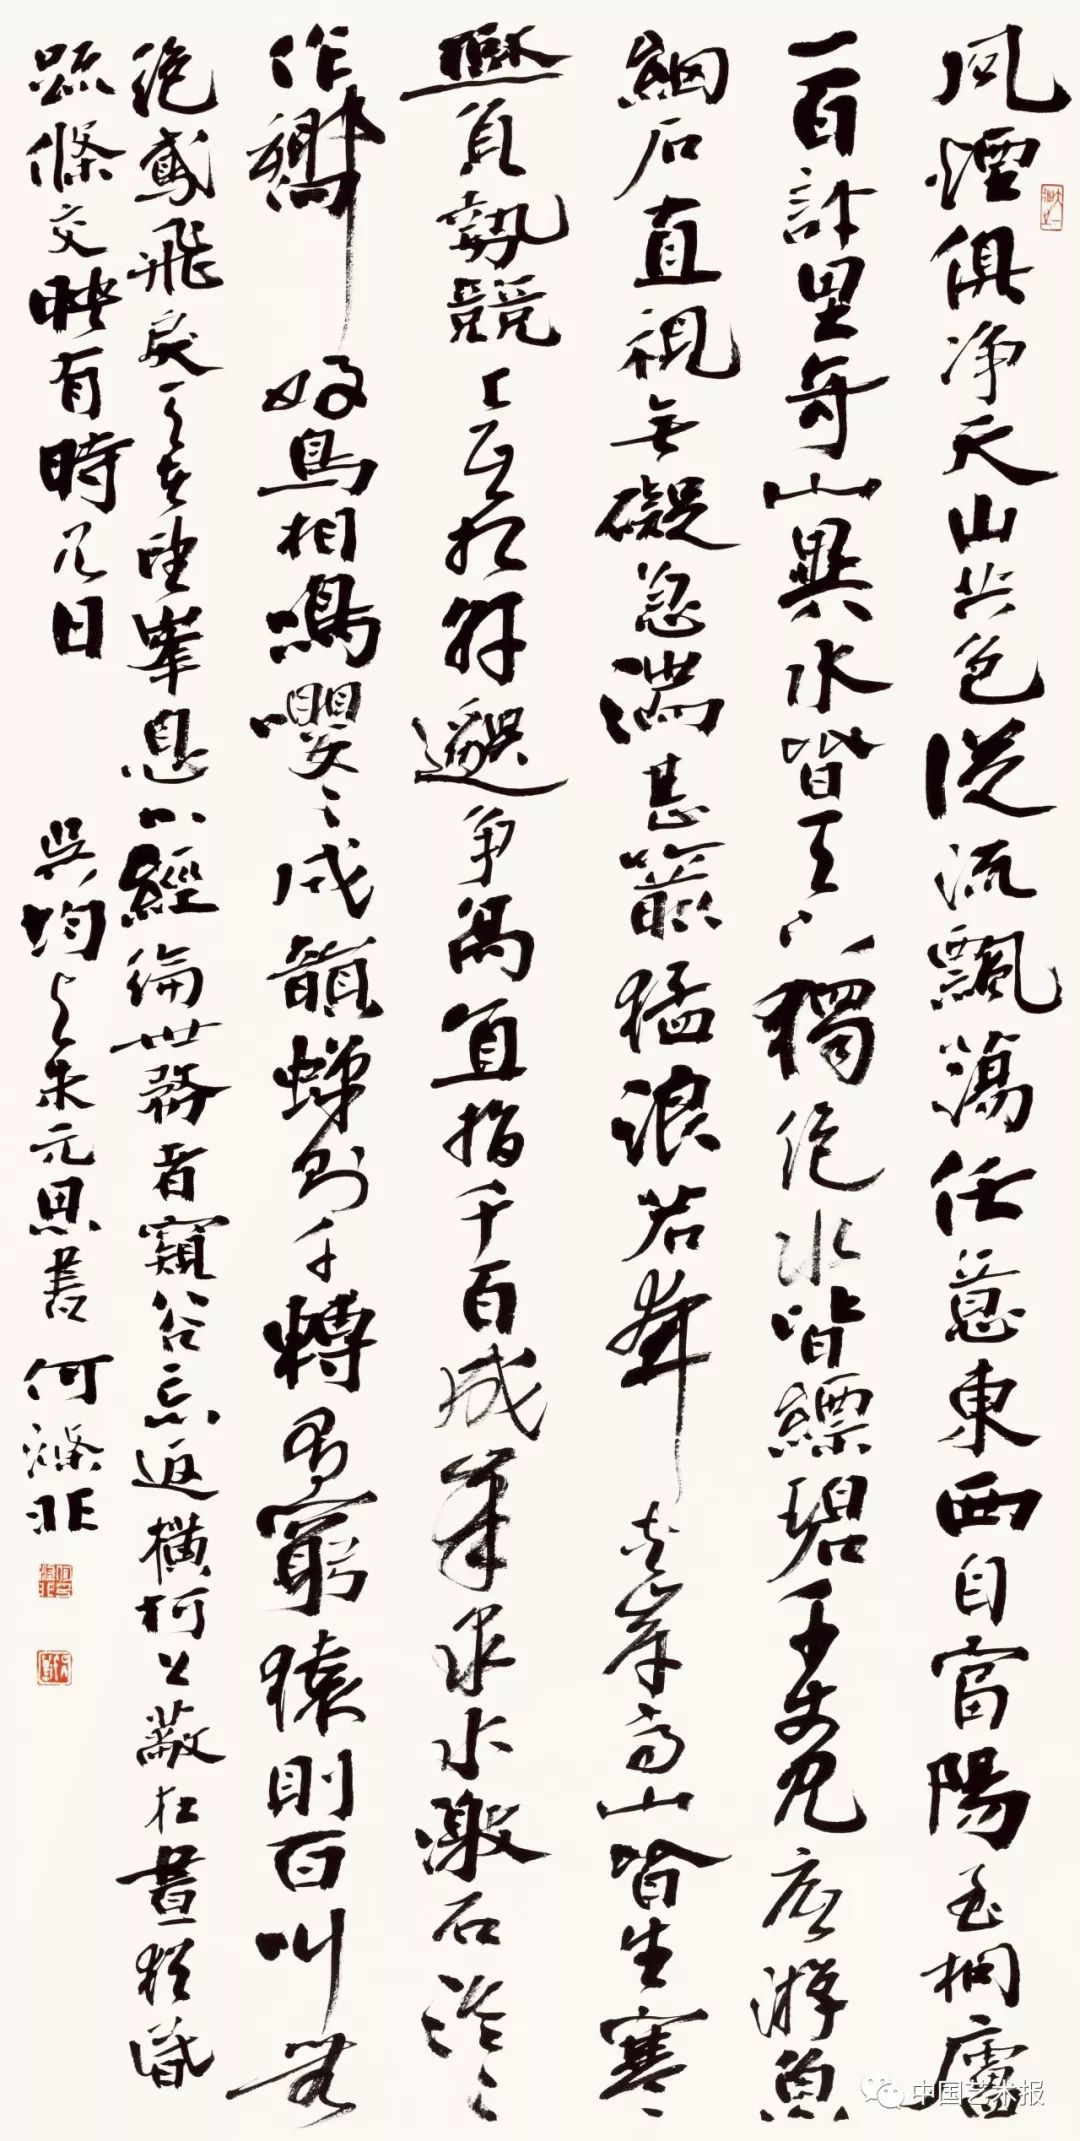 風煙俱净天山共色從流飄蕩任意東西自富陽至桐廬
一百許里奇山異水皆天下獨絕水皆縹碧千丈見底游魚
細石直視無礙急湍甚箭猛浪若奔夾岸高山皆生寒
樹負勢競上互相軒邈爭高直指千百成峯泉水激石泠々
作響好鳥相鳴嚶々成韻蟬則千轉不窮猿則百叫無
絕鳶飛戾天者望峯息心經綸世務者窺谷忘返橫柯上蔽在晝猶昏
疏條交映有時見日 吳均與朱元思書 何滌非
中国艺术报